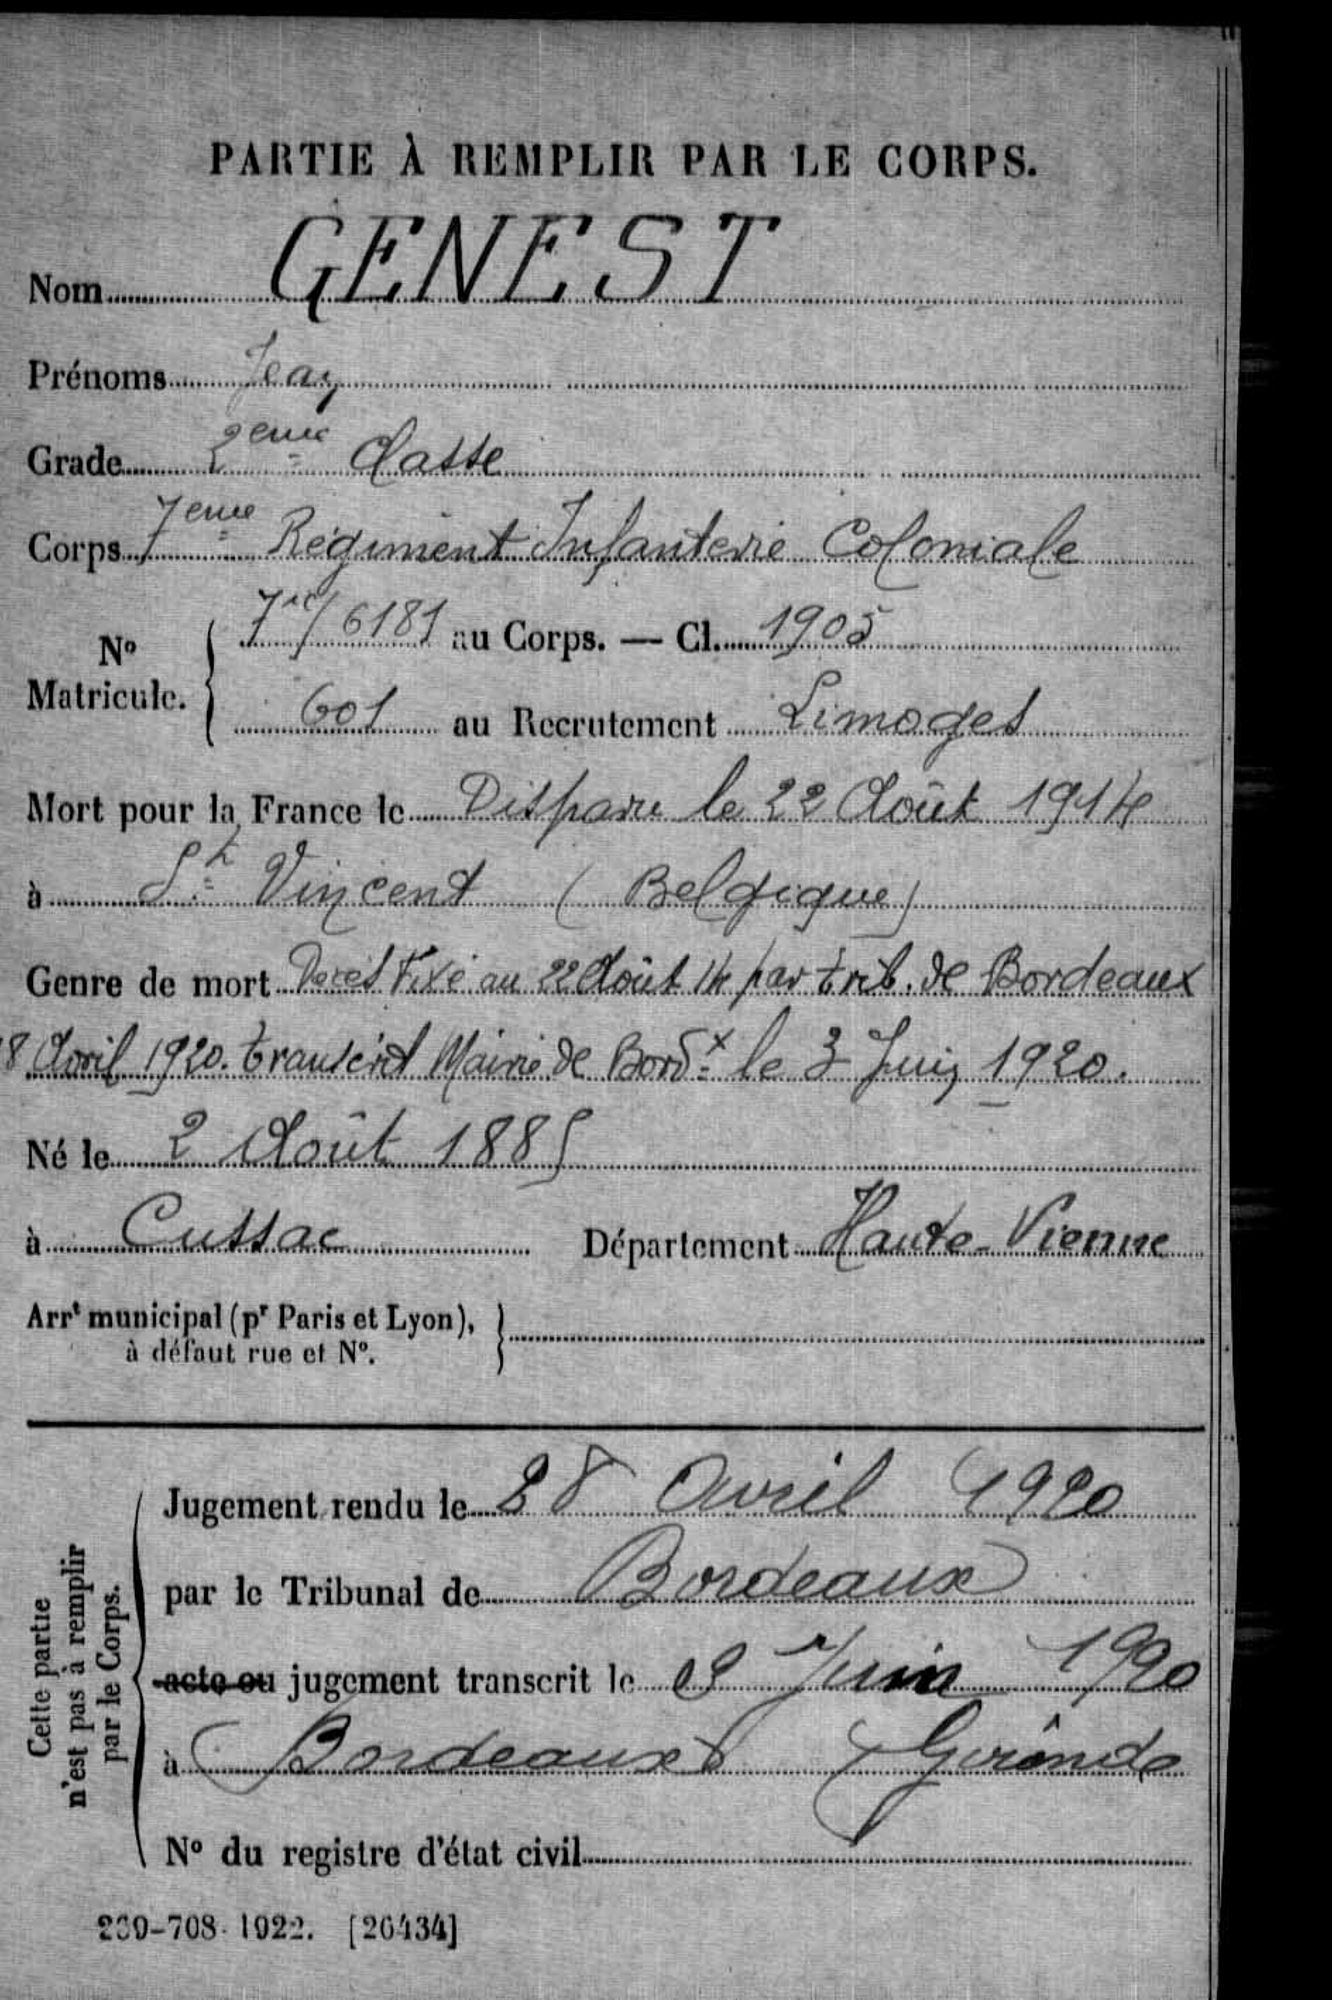 PARTIE À REMPLIR PAR LE CORPS.
Nom GENEST
Prénoms Jean
Grade 2eme Classe
Corps 7eme Régiment Infanterie Coloniale
N° Matricule. 7ic/6181 au Corps. — Cl. 1905
601 au Recrutement Limoges
Mort pour la France le Disparu le 22 Août 1914
à St Vincent (Belgique)
Genre de mort Décès Fixé au 22 Août 14 par trib. de Bordeaux
8 Avril 1920. transcrit Mairie de Bordx le 3 Juin 1920.
Né le 2 Août 1885
à Cussac Département Haute-Vienne
Arrt municipal (pr Paris et Lyon),
à défaut rue et N°.
Cette partie
n'est pas à remplir
par le Corps.
Jugement rendu le 28 Avril 1920
par le Tribunal de Bordeaux
acte ou jugement transcrit le Juin 1920
à Bordeaux Gironde
N° du registre d'état civil
-708-1922. [26434]